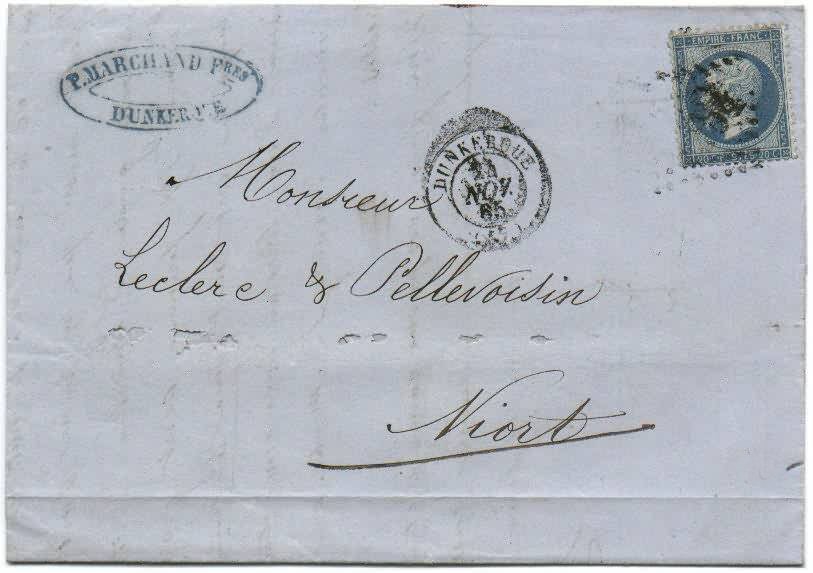 P. MARCHAND FRES
DUNKERQUE
EMPIRE FRANC
20 C 20 C
DUNKERQUE
NOV.
65
Monsieur
Leclerc & Pellevoisin
Niort